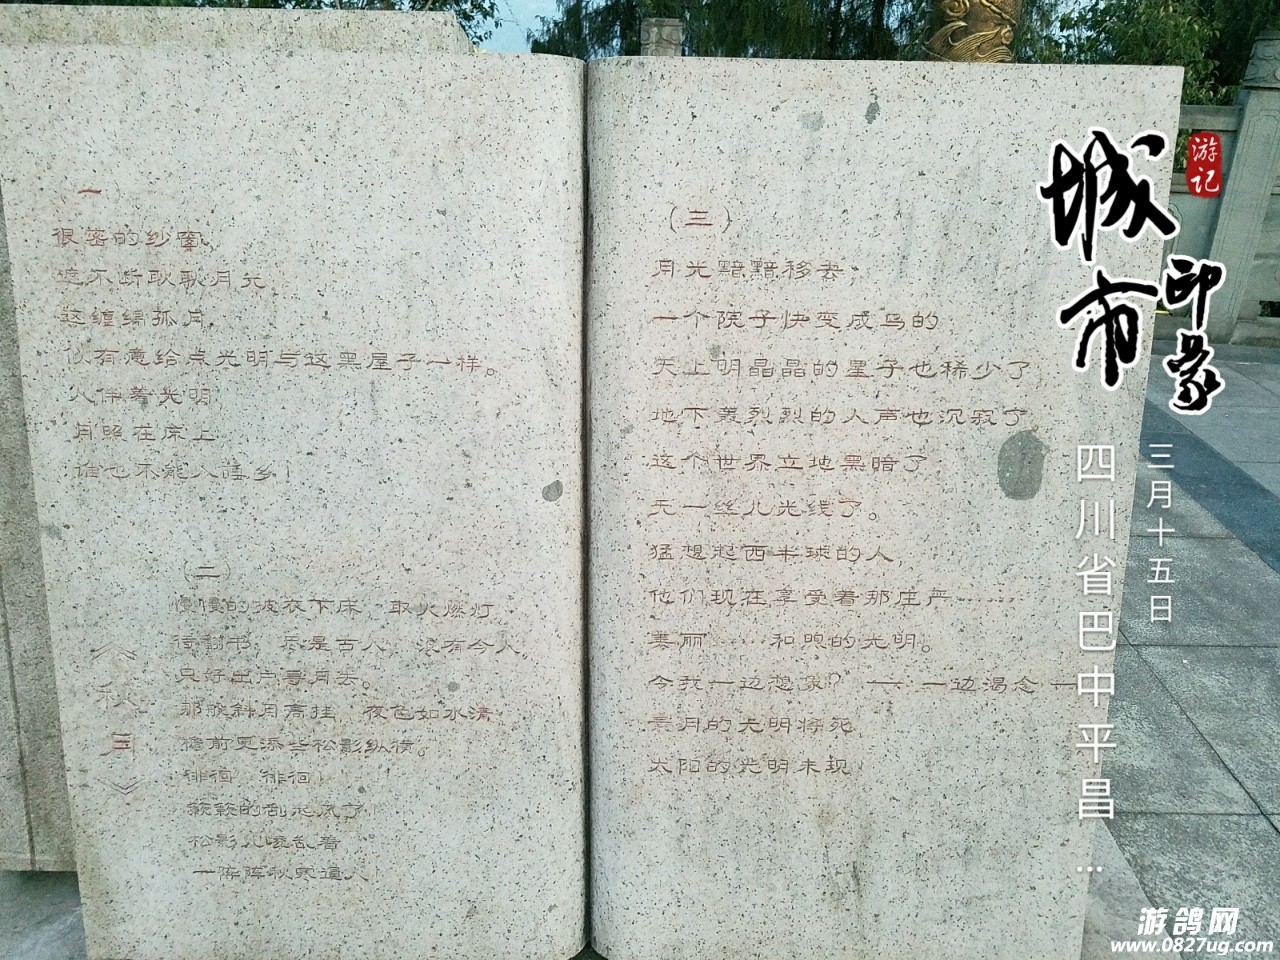 一
很密的纱窗，
遮不断耿耿月光，
这缠绵孤月，
似有意给点光明与这黑屋子一样。
人伴着光明，
月照在床上，
谁也不能入睡乡！
（二）
慢慢的披衣下床，取火燃灯，
待翻书，尽是古人，没有今人，
只好出户寻月去。
那般斜月高挂，夜色如水清，
檐前更添些松影纵横。
徘徊，徘徊！
簌簌的乱起风了！
松影儿凌乱着
一阵阵秋寒逼人！
《秋月》
（三）
月光黯黯移去，
一个院子快变成乌的，
天上明晶晶的星子也稀少了，
地下轰烈烈的人声也沉寂了。
这个世界立地黑暗了
无一丝儿光线了。
猛想起西半球的人，
他们现在享受着那庄严……
美丽……和煦的光明。
今我一边想象？——一边渴念——
素月的光明将死，
太阳的光明未现！
城市印象
游记
三月十五日
四川省巴中平昌...
游鸽网
www.0827ug.com